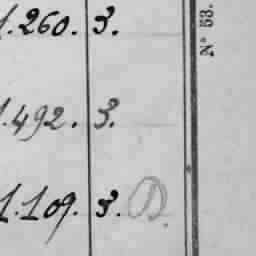 1.260. 3.
1.492. 3.
1.109. 3. D.
N° 53.